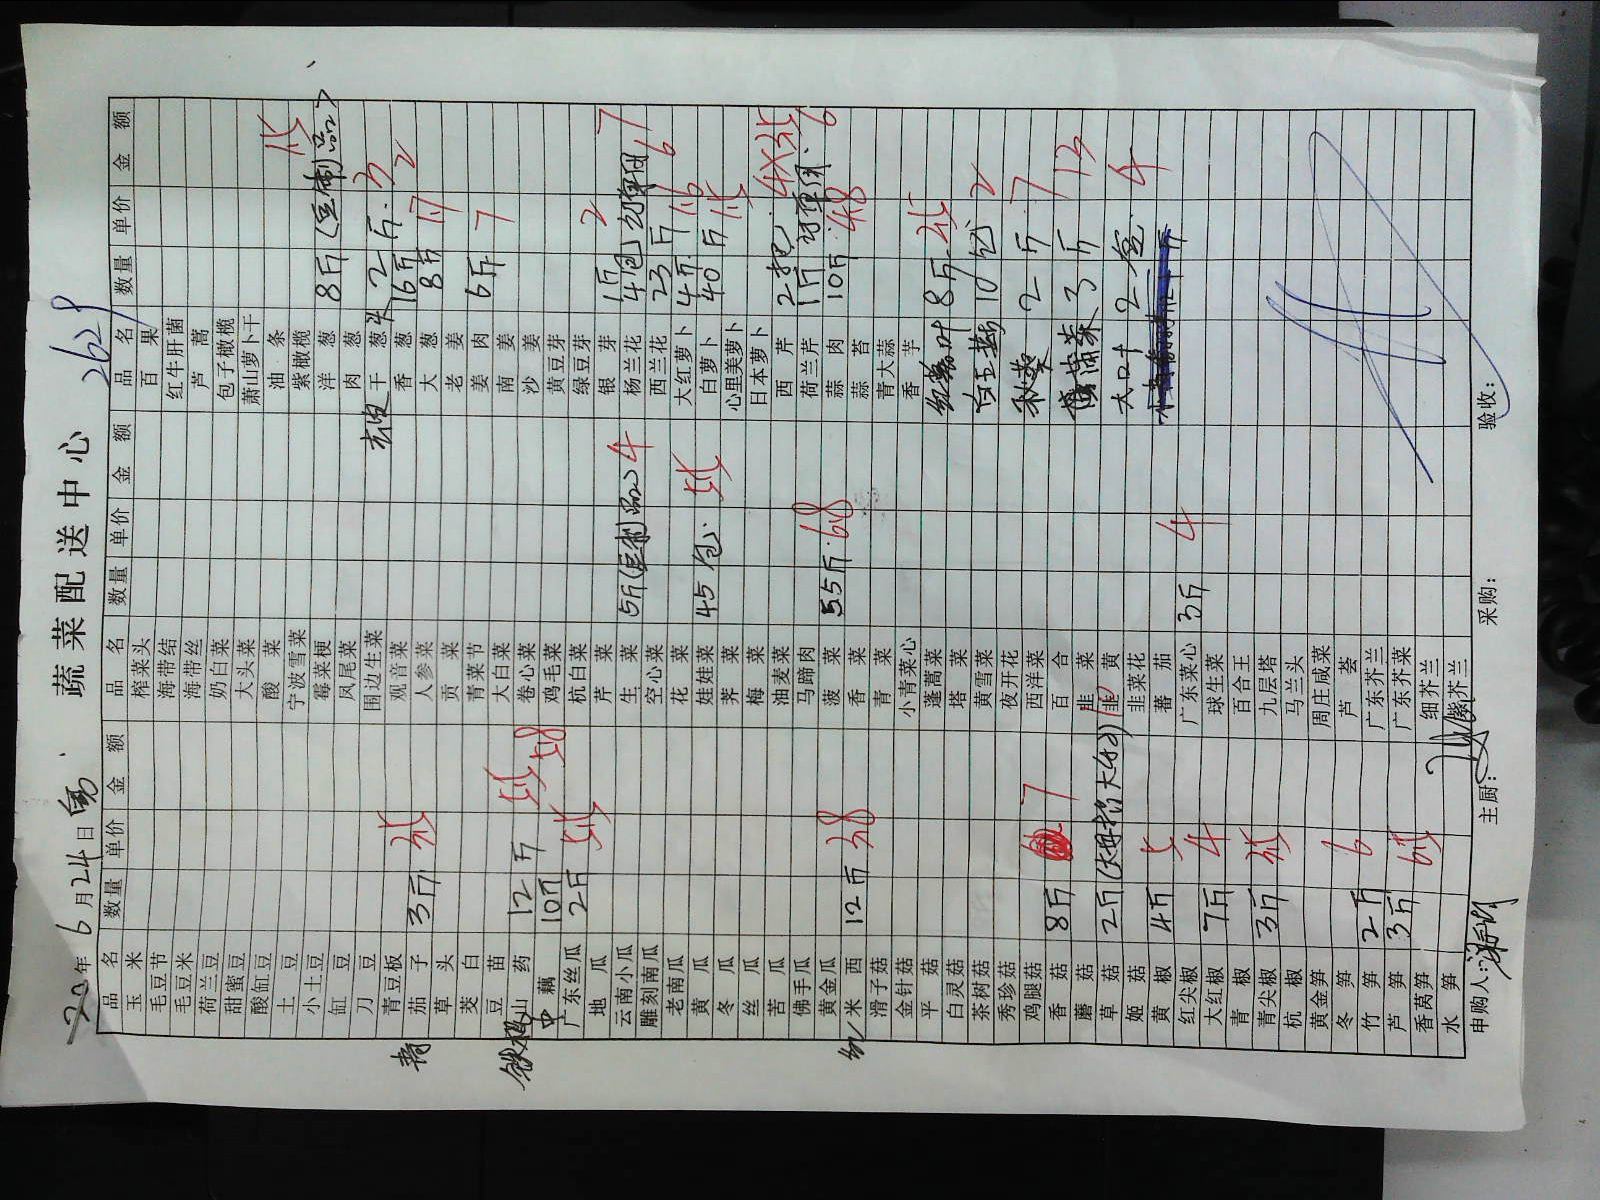 蔬菜配送中心
6月24日
品名 数量 单价 金额 品名 数量 单价 金额 品名 数量 单价 金额
玉米 榨菜头 百果
毛豆节 海带结 红牛肝菌
毛豆米 海带丝 芦蒿
荷兰豆 奶白菜 包子橄榄
甜蜜豆 大头菜 萧山萝卜干
酸缸豆 酸菜 油条
土豆 宁波雪菜 紫橄榄
小土豆 霉菜梗 洋葱 8斤(豆制品)
缸豆 凤尾菜 肉葱
刀豆 围边生菜 去皮干葱头 2斤 3
青豆板 观音菜 香葱 16斤 2
青茄子 3斤 人参菜 大葱 8斤
草头 贡菜 老姜
茭白 青菜节 姜肉 6斤 7
豆苗 大白菜 南姜
铁棍山药 12斤 卷心菜 沙姜
中藕 10斤 58 鸡毛菜 黄豆芽
广东丝瓜 2斤 杭白菜 绿豆芽
地瓜 芹菜 银芽 1斤 2 7
云南小瓜 生菜 5斤(豆制品) 4 杨兰花 4包
雕刻南瓜 空心菜 西兰花 23斤 6
老南瓜 花菜 大红萝卜 4斤
黄瓜 娃娃菜 45包 白萝卜 40斤
冬瓜 荠菜 心里美萝卜
丝瓜 梅菜 日本萝卜
苦瓜 油麦菜 西芹 2把
佛手瓜 马蹄肉 荷兰芹 1斤
黄金瓜 菠菜 55斤 68 蒜肉 10斤 48 6
红米西 12斤 38 香菜 蒜苔
滑子菇 青菜 青大蒜
金针菇 小青菜心 香芋
平菇 蓬蒿菜 8斤
白灵菇 塔菜 白玉菇 10包 2
茶树菇 黄雪菜
秀珍菇 夜开花 秋葵 2斤 7
鸡腿菇 西洋菜
香菇 8斤 7 百合 3斤 12
磨菇 韭菜
草菇 2斤(大拇指大小) 韭黄 大口叶 2盒 4
姬菇 韭菜花
黄椒 4斤 5 蕃茄
红尖椒 广东菜心 3斤 4
大红椒 7斤 4 球生菜
青椒 百合王
青尖椒 3斤 九层塔
杭椒 马兰头
黄金笋 周庄咸菜
冬笋 芦荟
竹笋 2斤 6 广东芥兰
芦笋 3斤 广东芥菜
香莴笋 细芥兰
水笋 紫芥兰
申购人: 主厨: 采购: 验收: